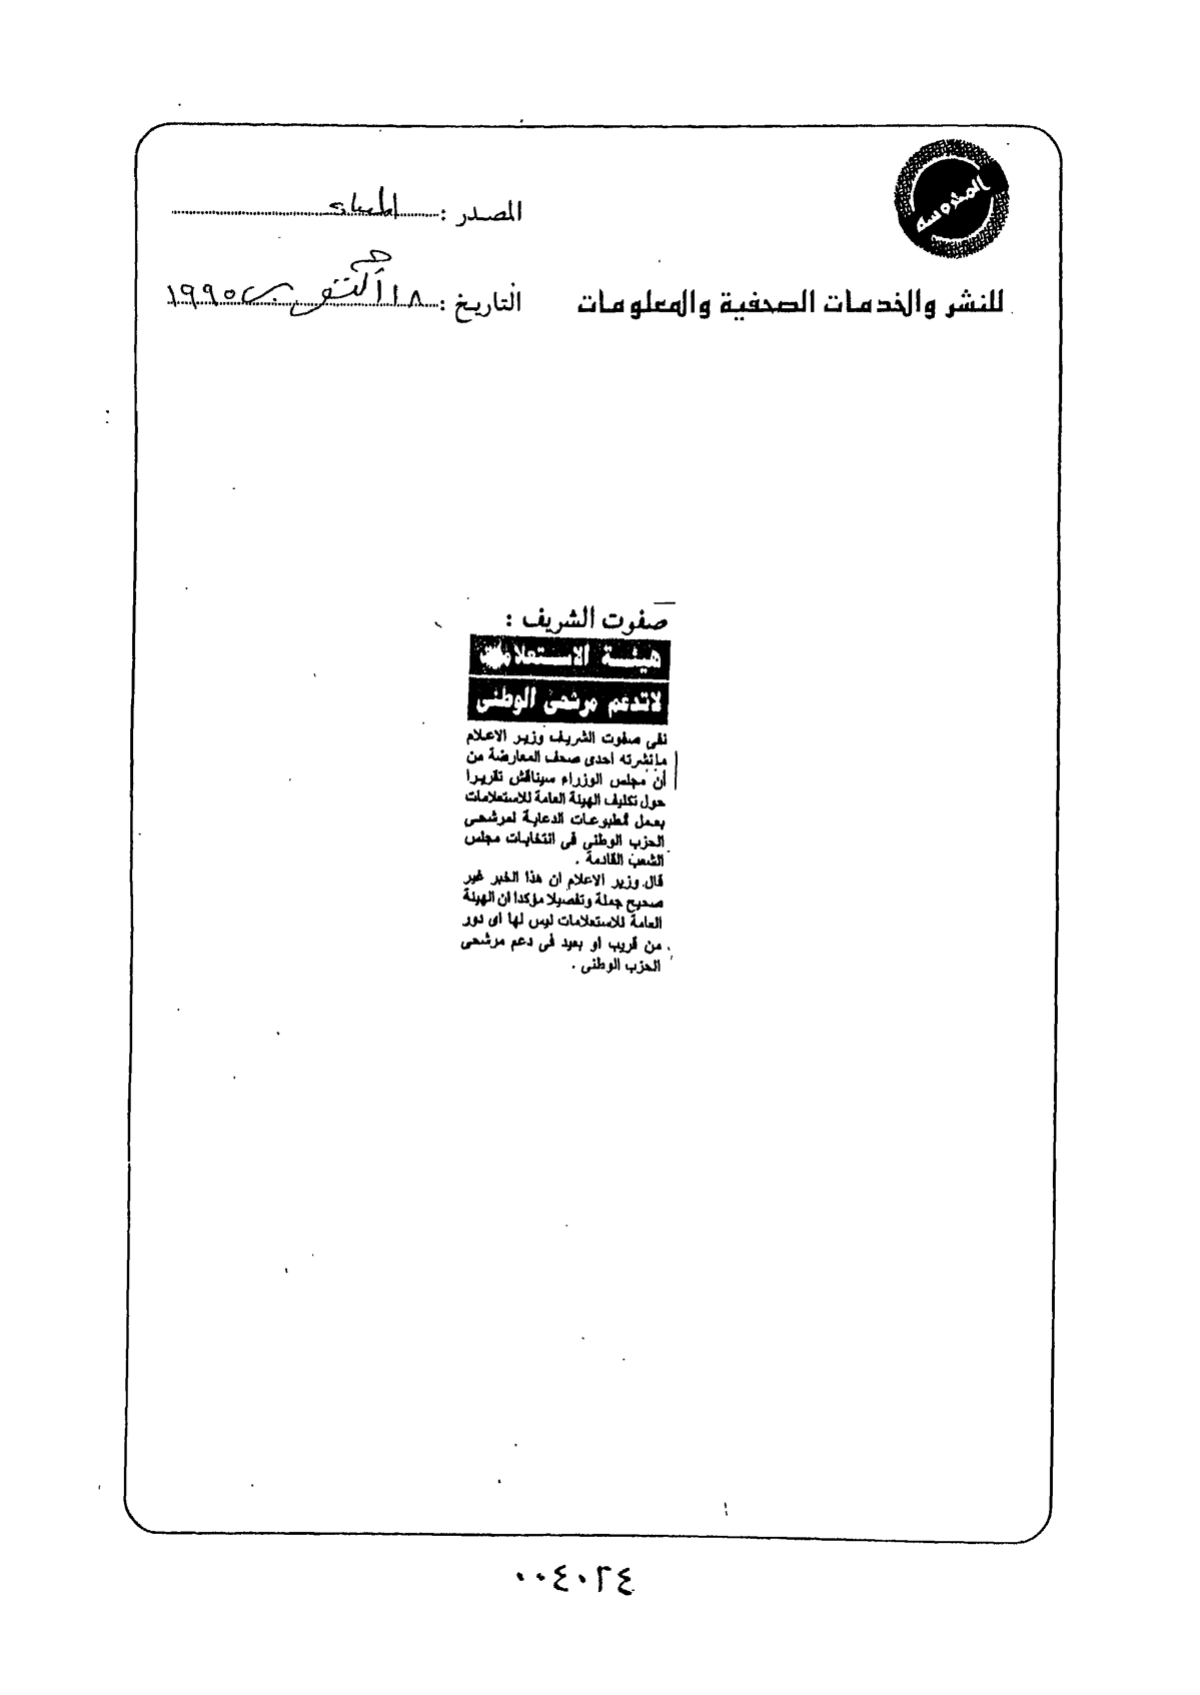 المحروسة
المصدر : المساء
للنشر والخدمات الصحفية والمعلومات
التاريخ : ١٨ أكتوبر ١٩٩٥
صفوت الشريف :
هيئة الاستعلامات
لاتدعم مرشحى الوطنى
نفى صفوت الشريف وزير الاعلام
مانشرته احدى صحف المعارضة من
أن مجلس الوزراء سيناقش تقريرا
حول تكليف الهيئة العامة للاستعلامات
بعمل مطبوعات الدعاية لمرشحى
الحزب الوطنى فى انتخابات مجلس
الشعب القادمة .
قال وزير الاعلام ان هذا الخبر غير
صحيح جملة وتفصيلا مؤكدا ان الهيئة
العامة للاستعلامات ليس لها اى دور
من قريب او بعيد فى دعم مرشحى
الحزب الوطنى .
٠٠٤٠٢٤